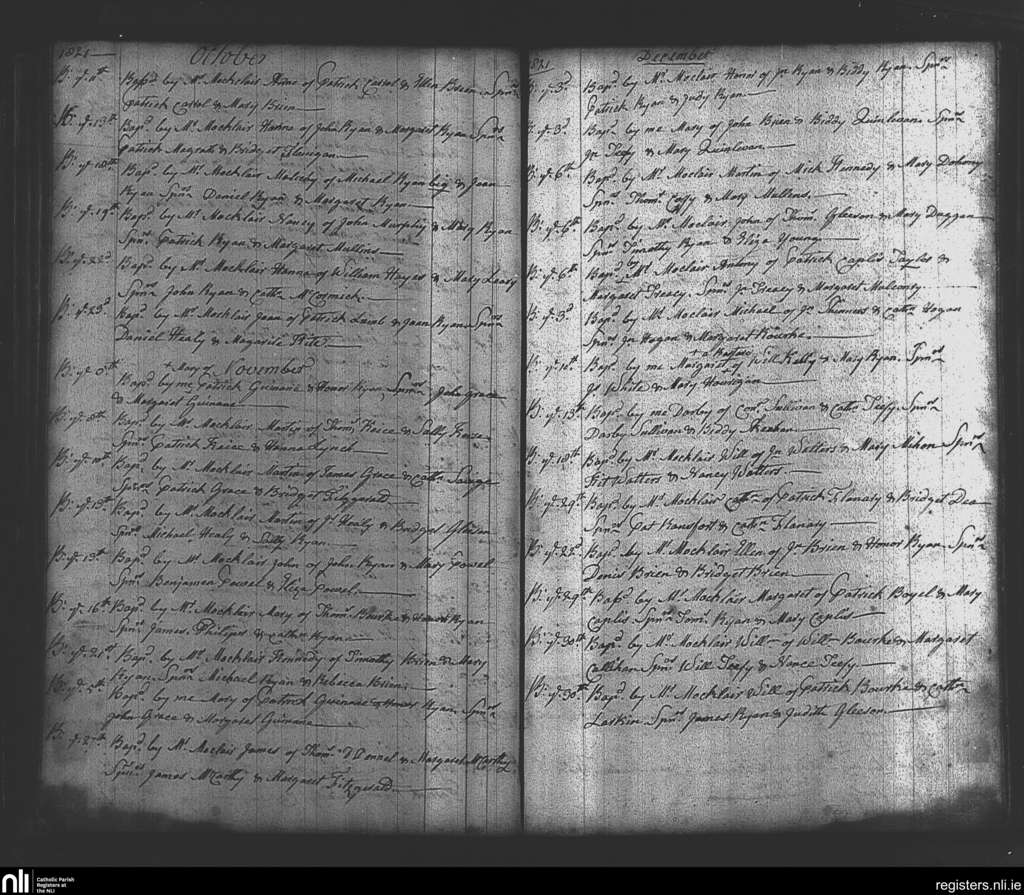 1821 October
B: ye 11th Bapd. by Mr. Mocklair Anne of Patrick Carrol & Ellen Brien Spnrs
Patrick Carrol & Mary Brien
B: ye 13th Bapd. by Mr. Mocklair Hanna of John Ryan & Margaret Ryan Spnrs
Patrick Magrath & Bridget Flanigan
B: ye 18th Bapd. by Mr. Mocklair Malachy of Michael Ryan big & Joan
Ryan Spnrs Daniel Ryan & Margaret Ryan
B: ye 19th Bapd. by Mr. Mocklair Nancy of John Murphy & Mary Ryan
Spnrs Patrick Ryan & Margaret Mullins
B: ye 22d Bapd. by Mr. Mocklair Hanna of William Hayes & Mary Leary
Spnrs John Ryan & Cathn. McCormick
B: ye 23d Bapd. by Mr. Mocklair Joan of Patrick Lamb & Joan Ryan Spnrs
Daniel Healy &
+ Mary November
B: ye Bapd. by me Patrick Guinane & Honor Ryan Spnrs John Grace
& Margaret Guinane
B: ye 8th Bapd. by Mr. Mocklair Martin of Thoms. & Sally
Spnrs Patrick & Hanna Lynch
B: ye 10th Bapd. by Mr. Mocklair Martin of James Grace & Cathn. Savage
Spnrs Patrick Grace & Bridget Fitzgerald
B: ye 13th Bapd. by Mr. Mocklair Martin of Jn. Healy & Bridget Gleeson
Spnrs Michael Healy & Sally Ryan
B: ye 13th Bapd. by Mr. Mocklair John of John Ryan & Mary Powel
Spnrs Benjamen Powel & Eliza Powel
B: ye 16th Bapd. by Mr. Mocklair Mary of Thoms. Bourke & Honor Ryan
Spnrs James Philips & Cathn. Ryan
B: ye 21st Bapd. by Mr. Mocklair Kennedy of Timothy Brien & Mary
Ryan Spnrs Michael Ryan & Rebecca Brien
B: ye 5th Bapd. by me Mary of Patrick Guinane & Honor Ryan Spnrs
John Grace & Margaret Guinane
B: ye 27th Bapd. by Mr. Moclair James of Thoms. O'Donnel & Margaret McCarthy
Spnrs James McCarthy & Margaret Fitzgerald
1821 December
B: ye 3d Bapd. by Mr. Moclair Honor of Jn Ryan & Biddy Ryan Spnrs
Patrick Ryan & Judy Ryan
B: ye 3d Bapd. by me Mary of John Brien & Biddy Quinlevan Spnrs
Jn Teefy & Mary Quinlevan
B: ye 6th Bapd. by Mr. Moclair Martin of Mick Kennedy & Mary Dohorny
Spnrs Thoms. Coffy & Mary Mullens
B: ye 6th Bapd. by Mr. Moclair John of Thoms. Gleeson & Mary Duggan
Spnrs Timothy Ryan & Eliza Young
B: ye 6th Bapd. by Mr. Moclair Antony of Patrick Caplis Tayler &
Margaret Treacy Spnrs Jn Treacy & Margaret
B: ye 3d Bapd. by Mr. Moclair Michael of Jn Skinners & Cathn. Hogan
Spnrs Jn Hogan & Margaret Rourke
+ a Bastard
B: ye Bapd. by me Margaret of Will Kelly & Mary Ryan Spnrs
Jn White & Mary Hourigan
B: ye 13th Bapd. by me Darby of Conr. Sullivan & Cathn. Teefy Spnrs
Darby Sullivan & Biddy Meehan
B: ye 18th Bapd. by Mr. Mocklair Will of Jn Watters & Mary Mihon Spnrs
Kit Watters & Nancy Watters
B: ye 24th Bapd. by Mr. Mocklair Cathn. of Patrick Flanaty & Bridget Dea
Spnrs Pat Hansfort & Cathn. Flanaty
B: ye 27th Bapd. by Mr. Mocklair Ellen of Jn Brien & Honor Ryan Spnrs
Denis Brien & Bridget Brien
B: ye 29th Bapd. by Mr. Mocklair Margaret of Patrick Boyel & Mary
Caplis Spnrs Tom. Ryan & Mary Caplis
B: ye 30th Bapd. by Mr. Mocklair Will of Will Bourke & Margaret
Callihan Spnrs Will Teefy & Nance Teefy
B: ye 30th Bapd. by Mr. Mocklair Will of Patrick Bourke & Cathn.
Larkin Spnrs James Ryan & Judith Gleeson
nli
Catholic Parish
Registers at
the NLI
registers.nli.ie